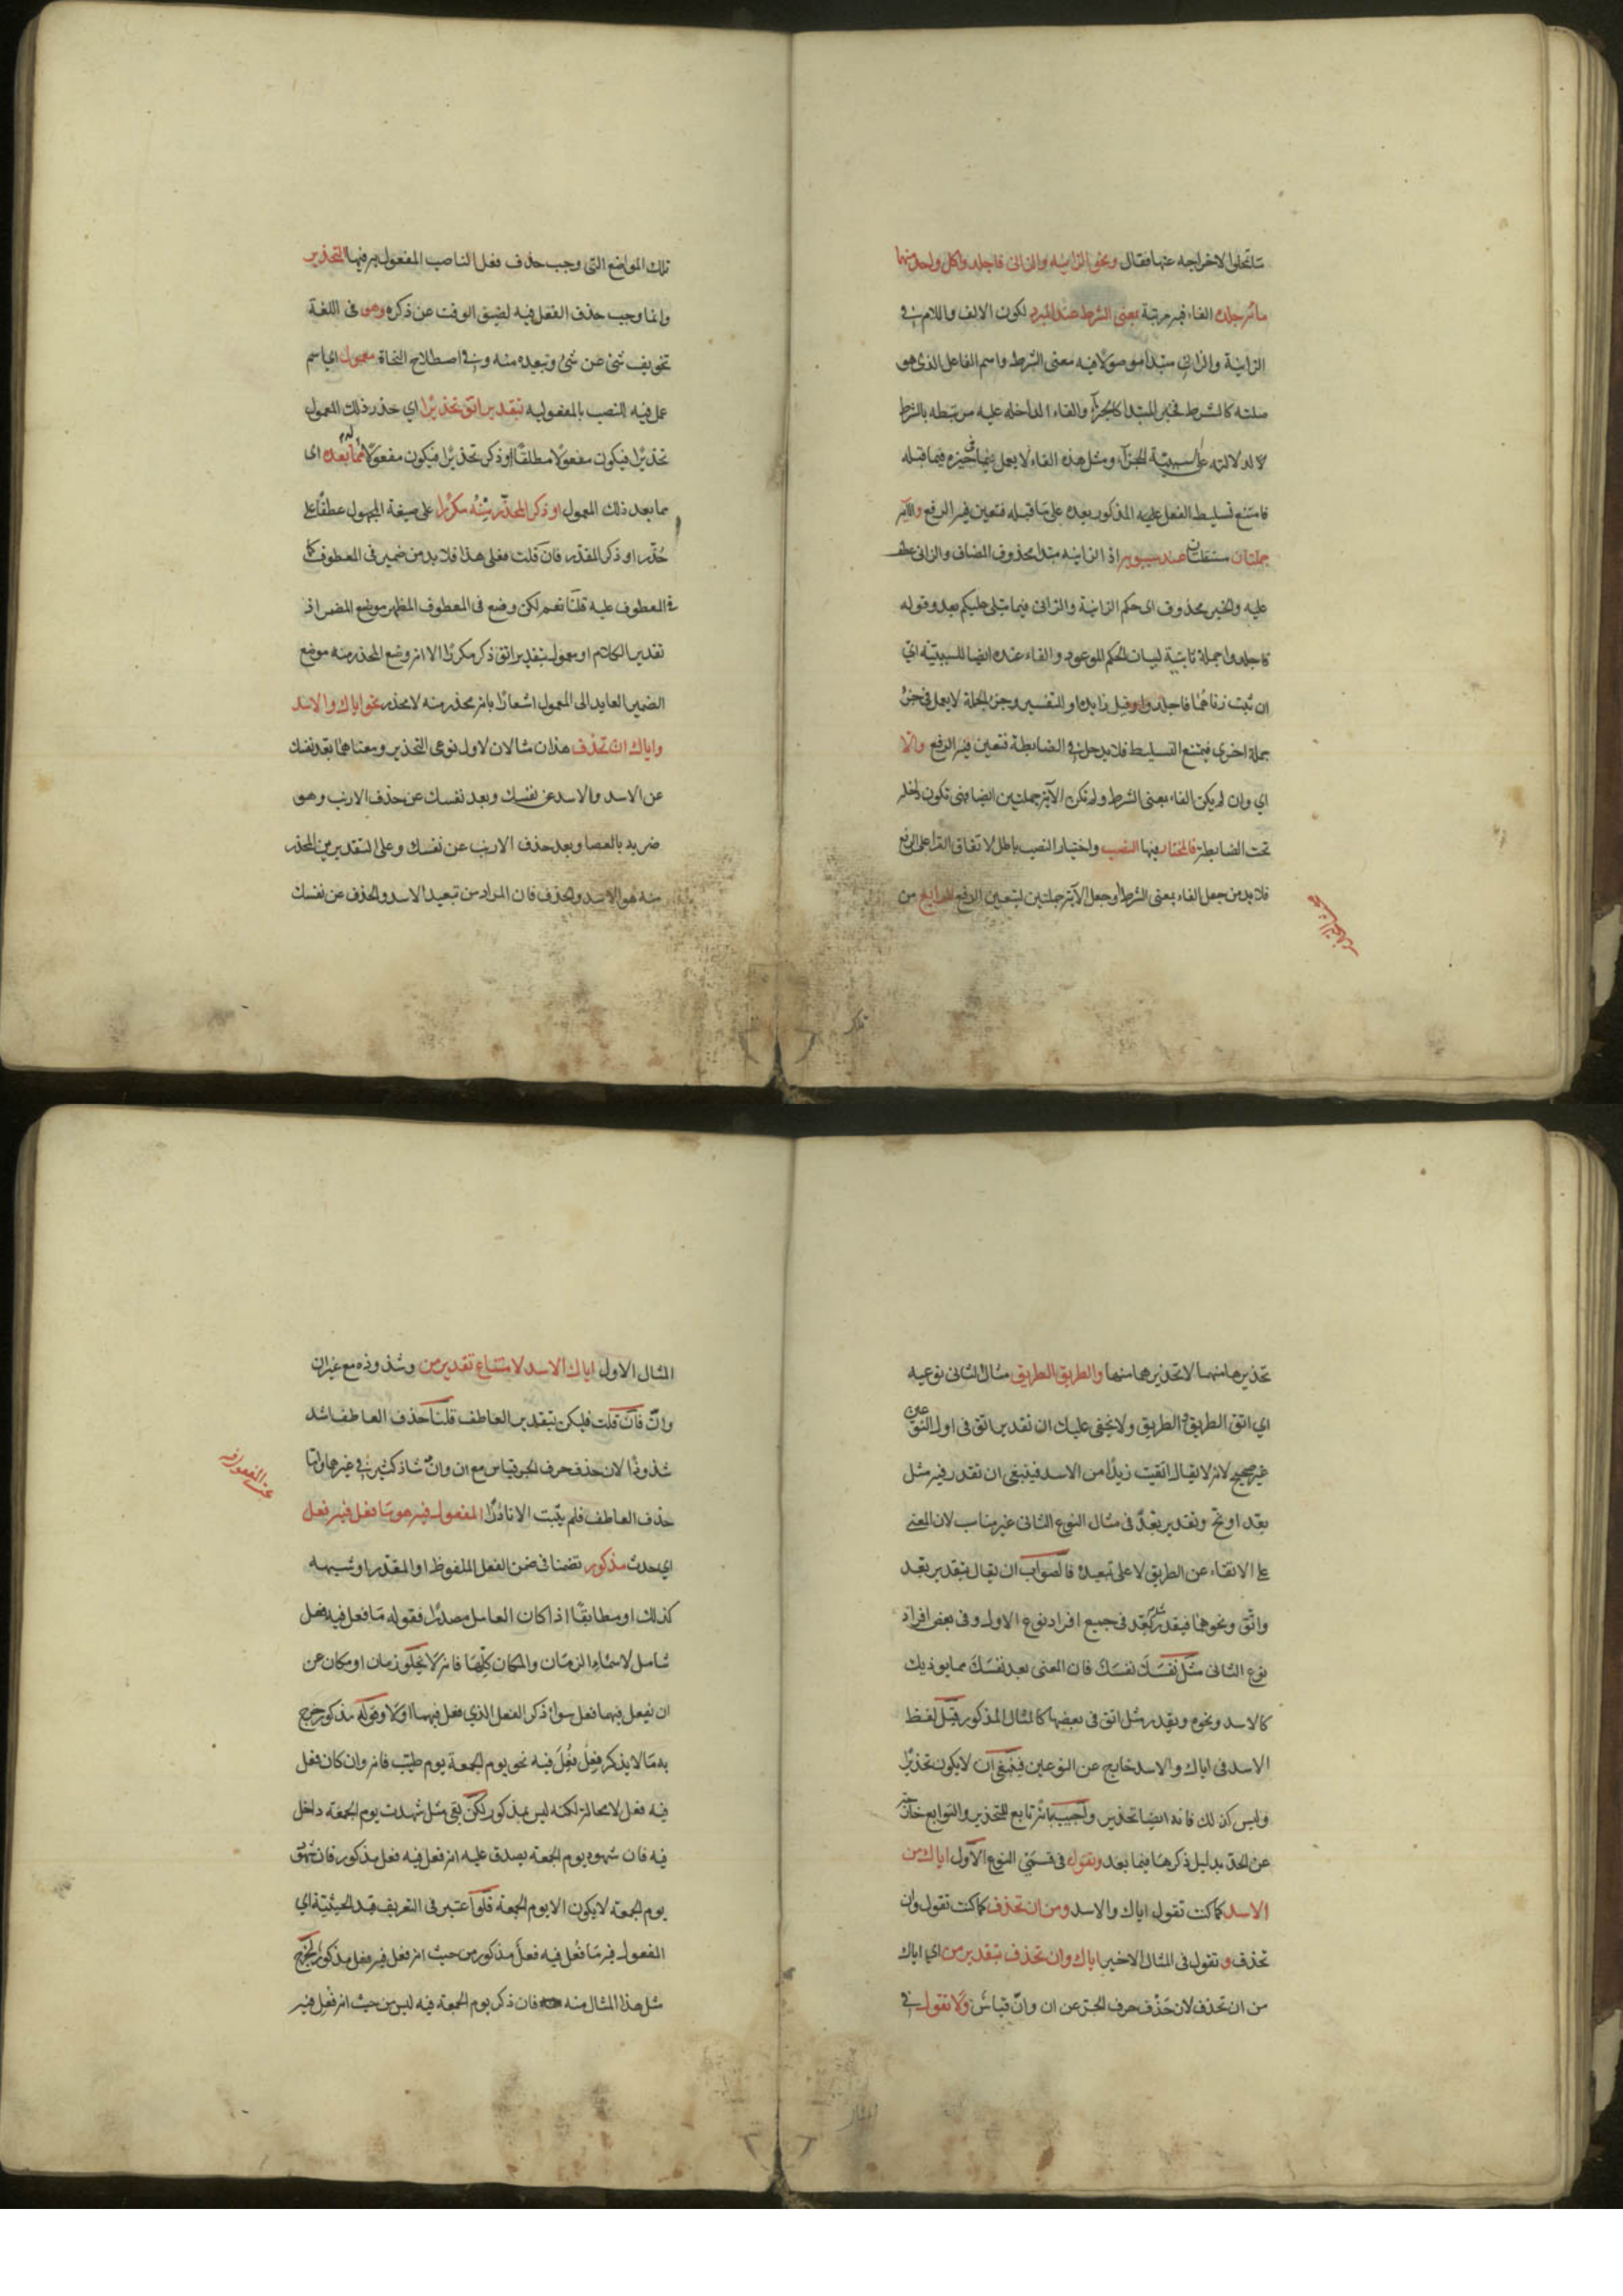 ما تمحلوا لاخراجه عنها فقال ونحو الزانية والزانى فاجلدوا كل واحد منهما
مائة جلدة الفاء فيه مرتبة بمعنى الشرط عند المبرد لكون الالف واللام فى
الزانية والزانى مبتدأ موصولا فيه معنى الشرط واسم الفاعل الذى هو
صلته كالشرط فخبر المبتدا كالجزآء والفاء الداخلة عليه مرتبطة بالشرط
لدلالته على سببية للجزآء ومثل هذه الفاء لا يعمل ما فى حيزه فيما قبله
فامتنع تسليط الفعل عليه المذكور بعده على ما قبله فتعين فيه الرفع والآية
جملتان مستقلتان عند سيبويه اذ الزانية مبتدا محذوف المضاف والزانى عطف
عليه والخبر محذوف اى حكم الزانية والزانى فيما يتلى عليكم بعد وقوله
فاجلدوا جملة ثانية لبيان الحكم الموعود والفاء عنده ايضا للسببية اى
ان ثبت زناهما فاجلدوا وقيل زايدة او للتفسير وجزء الجملة لا يعمل فى جزء
جملة اخرى فيمتنع التسليط فلا يدخل فى الضابطة فتعين فيه الرفع والا
اى وان لم يكن الفاء بمعنى الشرط ولم تكن الآية جملتين ايضا فهى تكون داخلة
تحت الضابطة فالمختار فيها النصب واختيار النصب باطل لاتفاق القراء على الرفع
فلا بد من جعل الفاء بمعنى الشرط او جعل الآية جملتين ليتعين الرفع الرابع من
تلك المواضع التى وجب حذف فعل الناصب المفعول به فيها التحذير
وانما وجب حذف الفعل فيه لضيق الوقت عن ذكره وهو فى اللغة
تخويف شئ عن شئ وتبعيده منه وفى اصطلاح النحاة معمول اى اسم
عمل فيه النصب بالمفعولية بتقدير اتق تحذيرا اى حذر ذلك المعمول
تحذيرا فيكون مفعولا مطلقا او ذكر تحذيرا فيكون مفعولا له مما بعده اى
مما بعد ذلك المعمول او ذكر المحذر منه مكررا على صيغة المجهول عطفا على
حذر او ذكر المقدر فان قلت فعلى هذا فلا بد من ضمير فى المعطوف كما
فى المعطوف عليه قلنا نعم لكن وضع فى المعطوف المظهر موضع المضمر اذ
تقدير الكلام او معمول بتقدير اتق ذكر مكررا الا انه وضع المحذر منه موضع
الضمير العايد الى المعمول اشعارا بانه محذر منه لا محذر نحو اياك والاسد
واياك ان تحذف هذان مثالان لاول نوعى التحذير ومعناهما بعد نفسك
عن الاسد والاسد عن نفسك وبعد نفسك عن حذف الارنب وهو
ضربه بالعصا وبعد حذف الارنب عن نفسك وعلى التقديرين المحذر
منه هو الاسد والحذف فان المراد من تبعيد الاسد والحذف عن نفسك
تحذيرها منهما لا تحذيرهما منها والطريق الطريق مثال لثانى نوعيه
اى اتق الطريق الطريق ولا يخفى عليك ان تقدير اتق فى اول النوعين
غير صحيح لانه لا يقال اتقيت زيدا من الاسد فينبغى ان تقدر فيه مثل
بعد او نح وتقدير بعد فى مثال النوع الثانى غير مناسب لان المعنى
على الاتقاء عن الطريق لا على تبعيده فالصواب ان يقال بتقدير بعد
واتق ونحوهما فيقدر مثل بعد فى جميع افراد نوع الاول وفى بعض افراد
نوع الثانى مثل نفسك نفسك فان المعنى بعد نفسك مما يوذيك
كالاسد ونحوه ويقدر مثل اتق فى بعضها كالمثال المذكور قيل لفظ
الاسد فى اياك والاسد خارج عن النوعين فينبغى ان لا يكون تحذيرا
وليس كذلك فانه ايضا تحذير واجيب بانه تابع للتحذير والتوابع خارجة
عن الحد بدليل ذكرها فيما بعد وتقول فى قسمى النوع الاول اياك من
الاسد كما كنت تقول اياك والاسد ومن ان تحذف كما كنت تقول وان
تحذف وتقول فى المثال الاخير اياك وان تحذف بتقدير من اى اياك
من ان تحذف لان حذف حرف الجر عن ان وان قياس ولا تقول فى
المثال الاول اياك الاسد لامتناع تقدير من وشذوذه مع غير ان
وان فان قلت فليكن بتقدير العاطف قلنا حذف العاطف اشد
شذوذا لان حذف حرف الجر قياس مع ان وان شاذ كثير فى غيرهما واما
حذف العاطف فلم يثبت الا نادرا المفعول فيه هو ما فعل فيه فعل
اى حدث مذكور تضمنا فى ضمن الفعل الملفوظ او المقدر او شبهه
كذلك او مطابقا اذا كان العامل مصدرا فقوله ما فعل فيه فعل
شامل لاسماء الزمان والمكان كلها فانه لا يخلو زمان او مكان عن
ان يفعل فيهما فعل سواء ذكر الفعل الذى فعل فيهما او لا وقوله مذكور خرج
به ما لا يذكر فعل فعل فيه نحو يوم الجمعة يوم طيب فانه وان كان فعل
فيه فعل لا محالة لكنه ليس بمذكور لكن بقى مثل شهدت يوم الجمعة داخل
فيه فان شهود يوم الجمعة يصدق عليه انه فعل فيه فعل مذكور فان شهود
يوم الجمعة لا يكون الا يوم الجمعة فلو اعتبر فى التعريف قيد الحيثية اى
المفعول فيه ما فعل فيه فعل مذكور من حيث انه فعل فيه فعل مذكور ليخرج
مثل هذا المثال منه فان ذكر يوم الجمعة فيه ليس من حيث انه فعل فيه